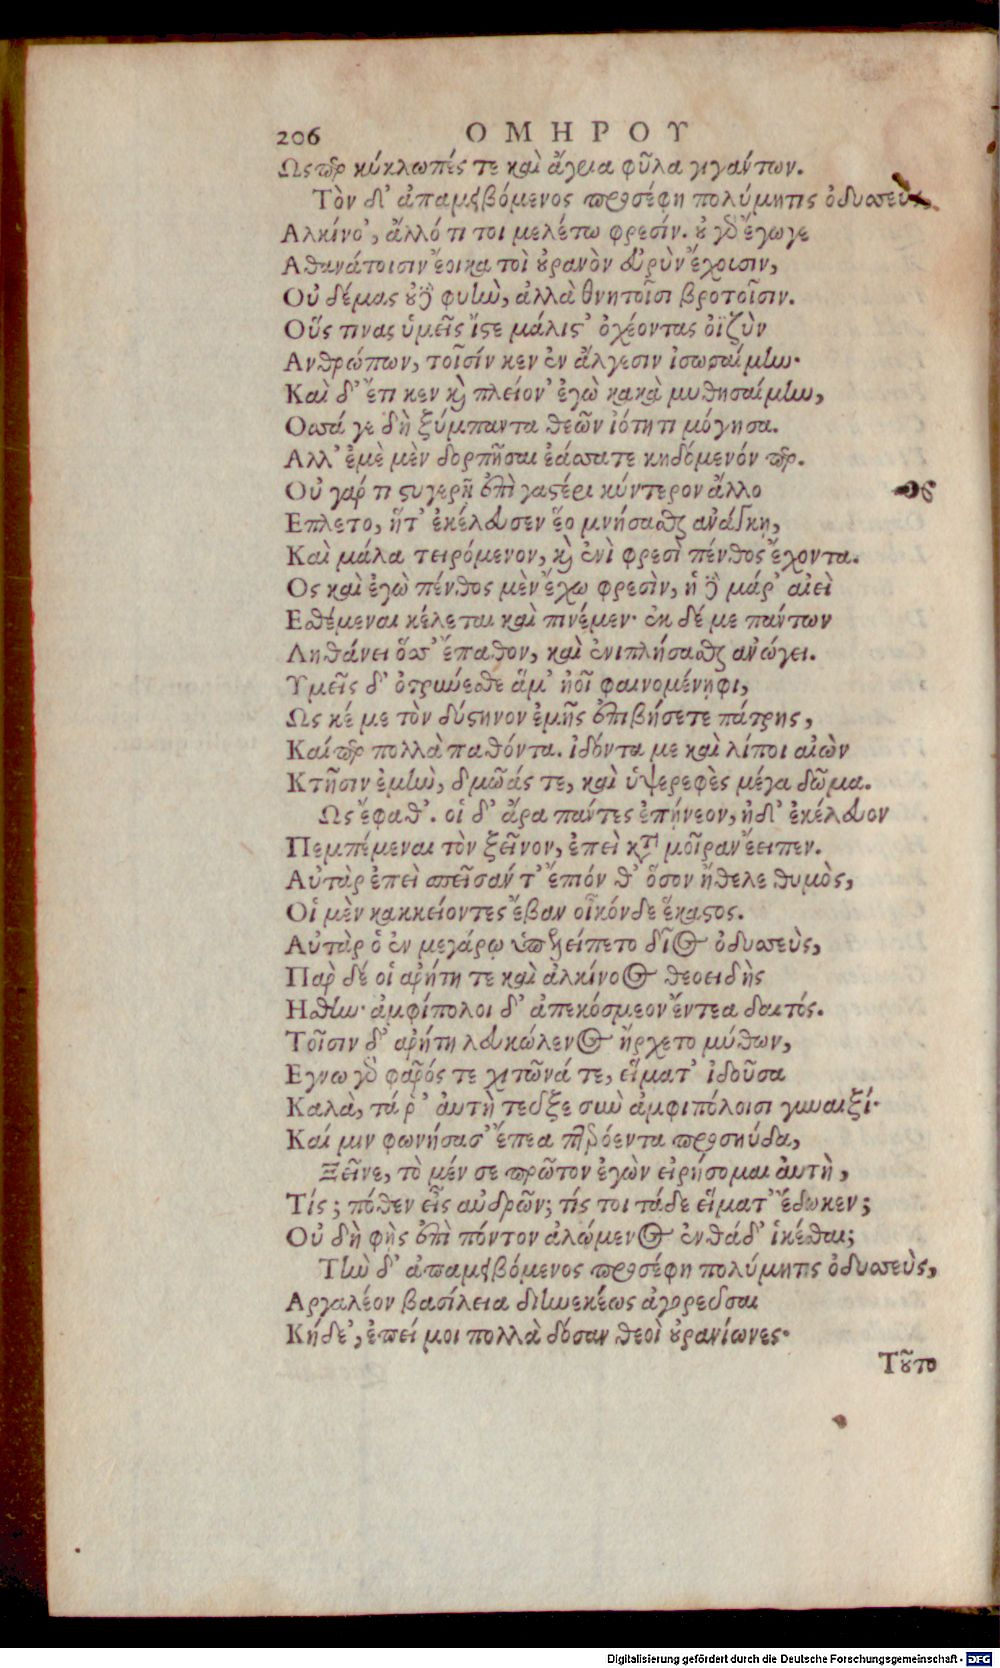 206 ΟΜΗΡΟΥ
Ως περ κύκλωπές τε καὶ ἄγρια φῦλα γιγάντων.
Τὸν δ' ἀπαμειβόμενος προσέφη πολύμητις ὀδυσσεύς,
Αλκίνο', ἄλλό τι τοι μελέτω φρεσίν. οὐ γὰρ ἔγωγε
Αθανάτοισιν ἔοικα τοὶ οὐρανὸν εὐρὺν ἔχουσιν,
Οὐ δέμας οὐδὲ φυὴν, ἀλλὰ θνητοῖσι βροτοῖσιν.
Οὕς τινας ὑμεῖς ἴστε μάλιστ' ὀχέοντας ὀϊζὺν
Ανθρώπων, τοῖσίν κεν ἐν ἄλγεσιν ἰσωσαίμην·
Καὶ δ' ἔτι κεν καὶ πλείον' ἐγὼ κακὰ μυθησαίμην,
Οσσά γε δὴ ξύμπαντα θεῶν ἰότητι μόγησα.
Αλλ' ἐμὲ μὲν δορπῆσαι ἐάσατε κηδόμενόν περ.
Οὐ γάρ τι στυγερῇ ἐπὶ γαστέρι κύντερον ἄλλο
Επλετο, ἥτ' ἐκέλευσεν ἕο μνήσασθαι ἀνάγκῃ,
Καὶ μάλα τειρόμενον, καὶ ἐνὶ φρεσὶ πένθος ἔχοντα.
Ος καὶ ἐγὼ πένθος μὲν ἔχω φρεσὶν, ἡ δὲ μάλ' αἰεὶ
Εσθέμεναι κέλεται καὶ πινέμεν· ἐκ δέ με πάντων
Ληθάνει ὅσσ' ἔπαθον, καὶ ἐνιπλήσασθαι ἀνώγει.
Υμεῖς δ' ὀτρύνεσθε ἅμ' ἠοῖ φαινομένηφι,
Ως κέ με τὸν δύστηνον ἐμῆς ἐπιβήσετε πάτρης,
Καί περ πολλὰ παθόντα. ἰδόντα με καὶ λίποι αἰὼν
Κτῆσιν ἐμὴν, δμῶάς τε, καὶ ὑψερεφὲς μέγα δῶμα.
Ως ἔφαθ'. οἱ δ' ἄρα πάντες ἐπῄνεον, ἠδ' ἐκέλευον
Πεμπέμεναι τὸν ξεῖνον, ἐπεὶ κατὰ μοῖραν ἔειπεν.
Αὐτὰρ ἐπεὶ σπεῖσάν τ' ἔπιόν θ' ὅσον ἤθελε θυμὸς,
Οἱ μὲν κακκείοντες ἔβαν οἶκόνδε ἕκαστος.
Αὐτὰρ ὁ ἐν μεγάρῳ ὑπελείπετο δῖος ὀδυσσεὺς,
Πὰρ δέ οἱ ἀρήτη τε καὶ ἀλκίνοος θεοειδὴς
Ησθην· ἀμφίπολοι δ' ἀπεκόσμεον ἔντεα δαιτός.
Τοῖσιν δ' ἀρήτη λευκώλενος ἤρχετο μύθων,
Εγνω γὰρ φᾶρός τε χιτῶνά τε, εἵματ' ἰδοῦσα
Καλὰ, τά ῥ' αὐτὴ τεῦξε σὺν ἀμφιπόλοισι γυναιξί·
Καί μιν φωνήσασ' ἔπεα πτερόεντα προσηύδα,
Ξεῖνε, τὸ μέν σε πρῶτον ἐγὼν εἰρήσομαι αὐτὴ,
Τίς; πόθεν εἶς ἀνδρῶν; τίς τοι τάδε εἵματ' ἔδωκεν;
Οὐ δὴ φῂς ἐπὶ πόντον ἀλώμενος ἐνθάδ' ἱκέσθαι;
Τὴν δ' ἀπαμειβόμενος προσέφη πολύμητις ὀδυσσεὺς,
Αργαλέον βασίλεια διηνεκέως ἀγορεῦσαι
Κήδε', ἐπεί μοι πολλὰ δόσαν θεοὶ οὐρανίωνες·
Τοῦτο
Digitalisierung gefördert durch die Deutsche Forschungsgemeinschaft - DFG